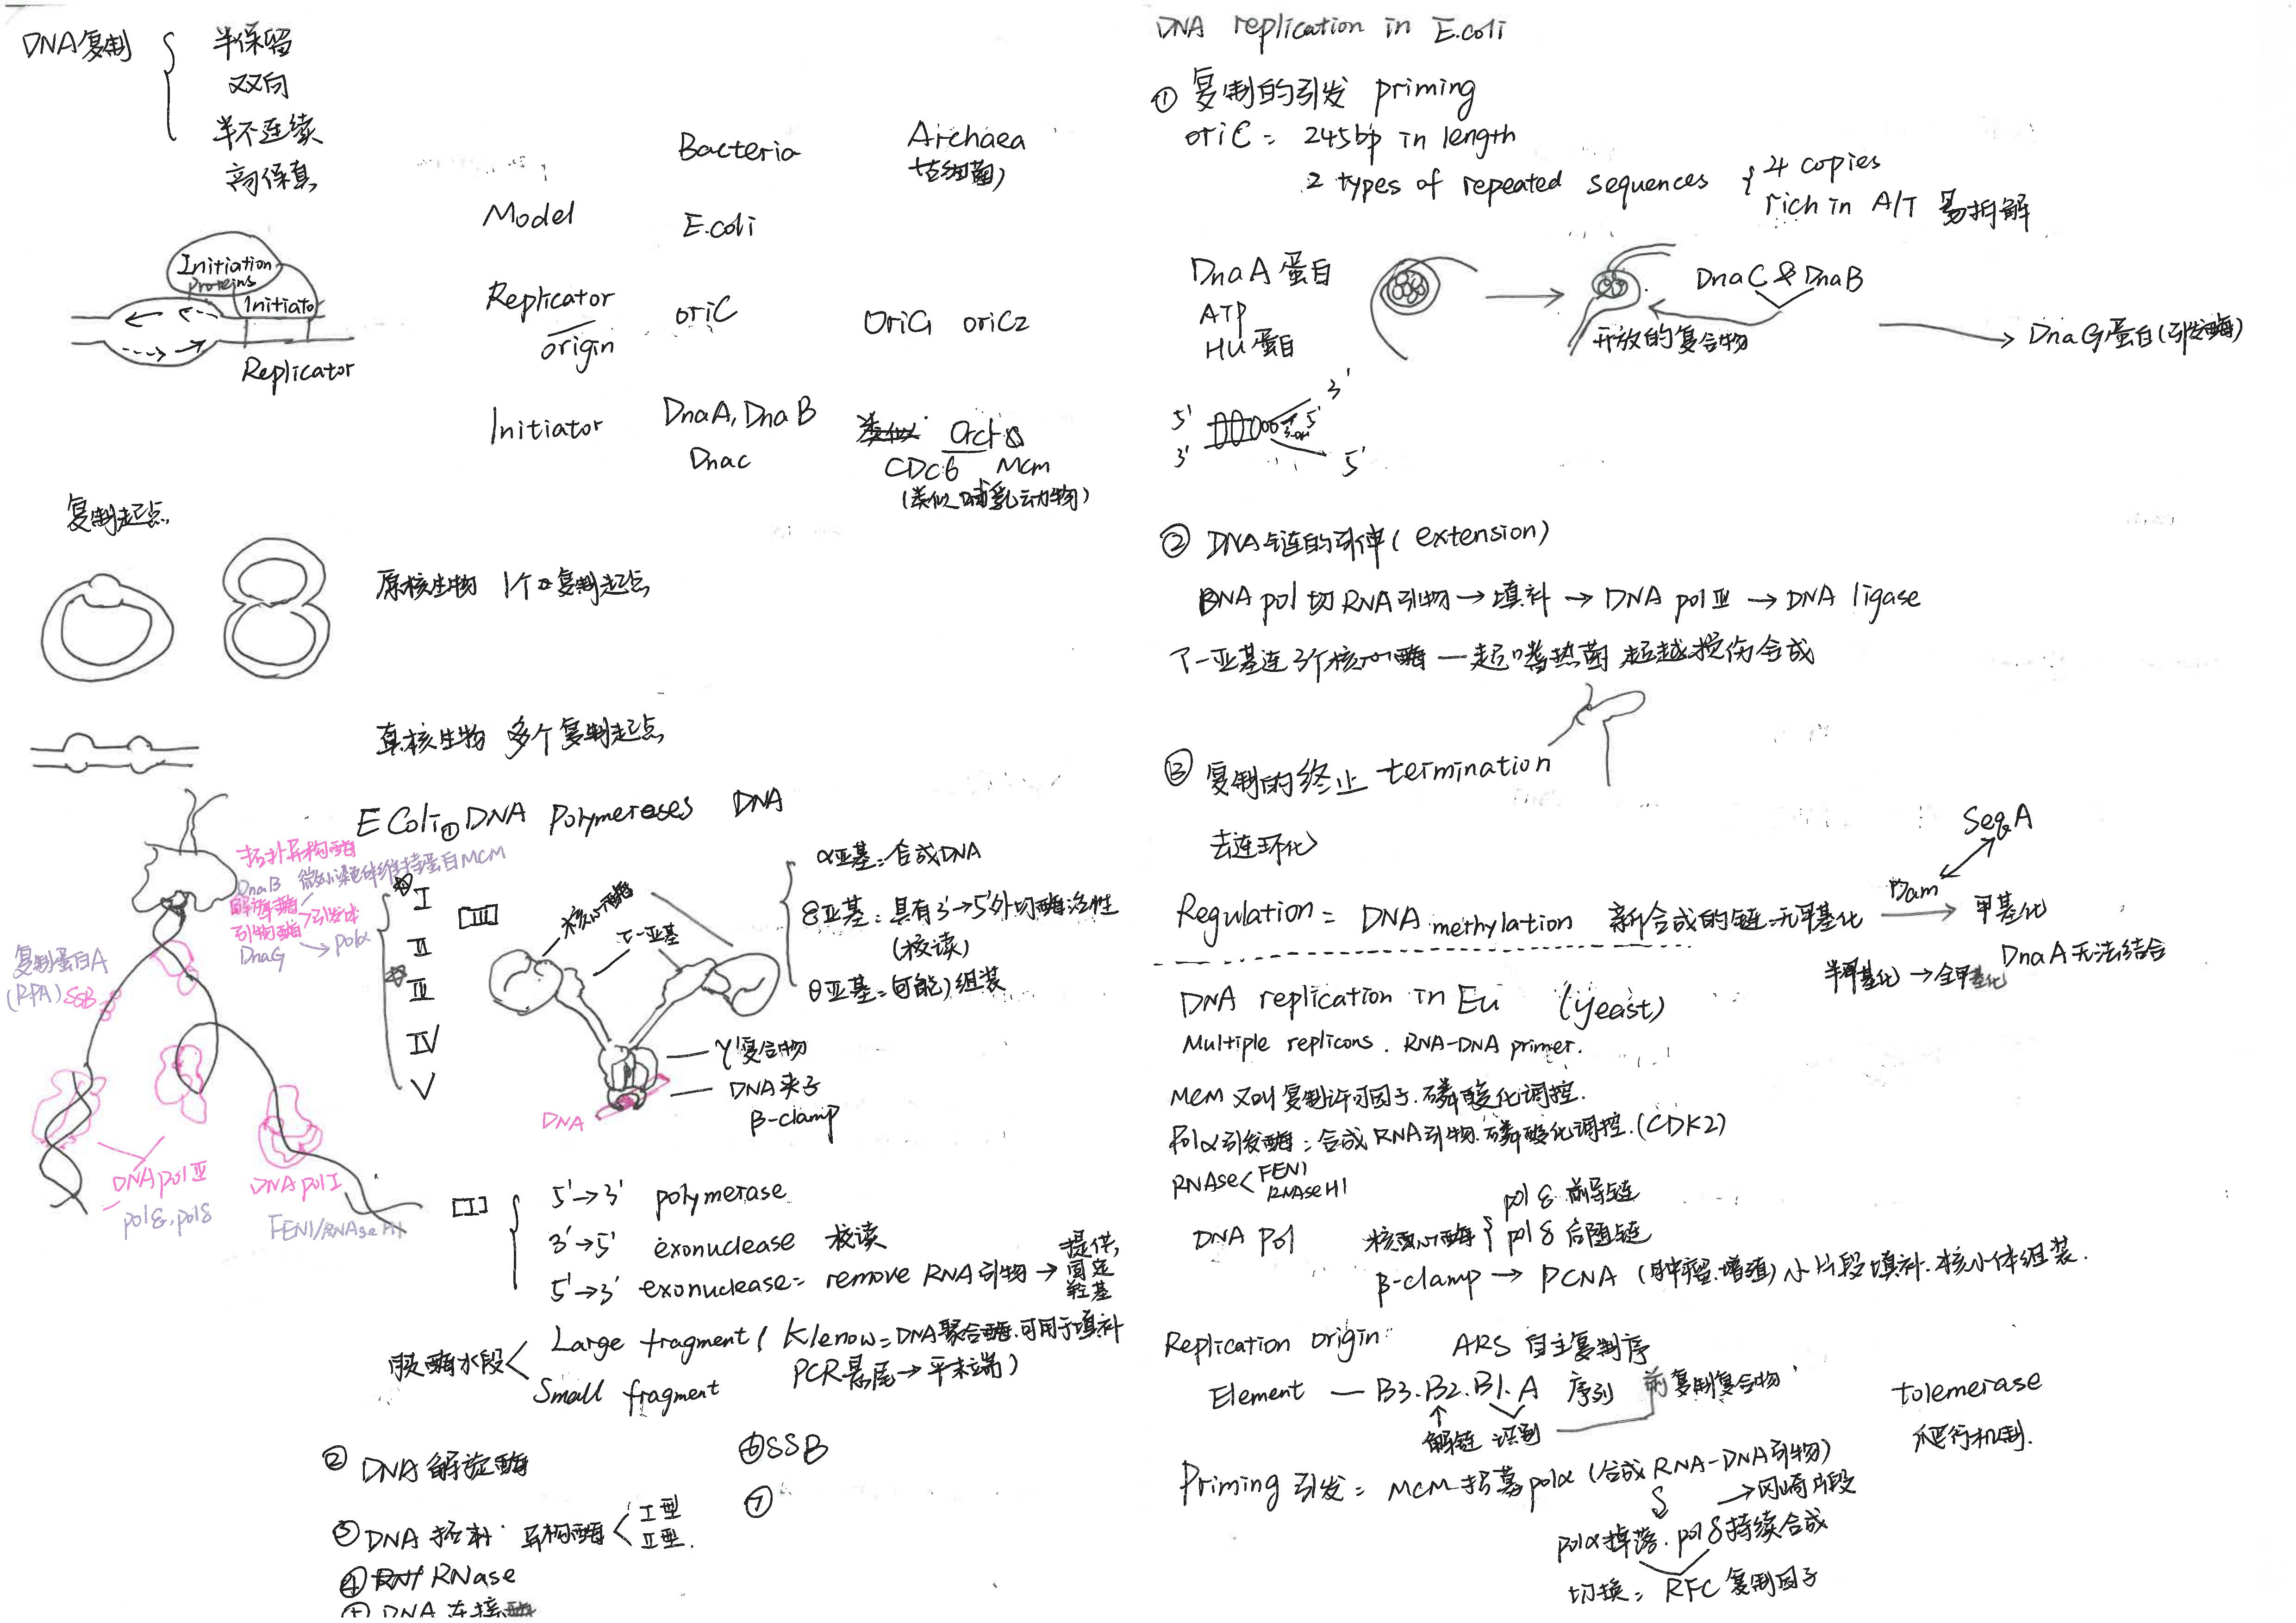 DNA复制
半保留
双向
半不连续
高保真
Bacteria
Archaea
古细菌)
Model
E.coli
Initiation
proteins
Initiato
Replicator
Replicator
origin
oriC
OriG oriC2
Initiator
DnaA, DnaB
Dnac
CDC6 Mcm
(类似哺乳动物)
复制起点
原核生物 1个 复制起点
真核生物 多个复制起点
E Coli ① DNA Polymereses DNA
拓扑异构酶
DnaB 微小染色体维持蛋白MCM
解旋酶
引发体
引物酶
DnaG → polα
复制蛋白A
(RPA) SSB
I
II
III
IV
V
[III]
核心酶
τ-亚基
α亚基: 合成DNA
ε亚基: 具有3'→5'外切酶活性
(校读)
θ亚基: 可能)组装
γ复合物
DNA夹子
β-clamp
DNA
DNA pol III
polε, polδ
DNA pol I
FEN1/RNAse H1
[I]
5'→3' polymerase
3'→5' exonuclease 校读
5'→3' exonuclease: remove RNA引物 → 提供,
固定
羟基
胰酶水段
Large fragment ( Klenow=DNA聚合酶.可用于填补
PCR悬尾→平末端)
Small fragment
② DNA 解旋酶
③ DNA 拓朴 异构酶
I型
II型.
④ RNase
⑤ DNA 连接酶
⑥ SSB
⑦
DNA replication in E.coli
① 复制的引发 priming
oriC = 245bp in length
2 types of repeated sequences
4 copies
rich in A/T 易拆解
DnaA 蛋白
ATP
HU 蛋白
DnaC & DnaB
开放的复合物
DnaG蛋白(引发酶)
5'
3'
3'
5'
5'
② DNA 链的引伸 ( extension)
DNA pol 切 RNA引物→填补→DNA pol III → DNA ligase
τ-亚基连3个核心酶 一起 嗜热菌 超越损伤合成
③ 复制的终止 termination
去连环化
SeqA
Dam
Regulation = DNA methylation 新合成的链无甲基化 → 甲基化
DnaA无法结合
半甲基化 → 全甲基化
DNA replication in Eu (yeast)
Multiple replicons. RNA-DNA primer.
MCM 又叫复制许可因子.磷酸化调控.
Polα引发酶: 合成RNA引物.磷酸化调控.(CDK2)
RNAse< FEN1
RNAseH1
DNA Pol
核心酶
pol ε 前导链
pol δ 后随链
β-clamp → PCNA (肿瘤.增殖) 小片段填补.核小体组装.
Replication origin: ARS 自主复制序
Element — B3.B2.B1.A 序列 前复制复合物
解链 识别
tolemerase
爬行机制.
Priming 引发 = MCM招募polα (合成RNA-DNA引物)
→冈崎片段
polα掉落. pol δ持续合成
切换 = RFC 复制因子